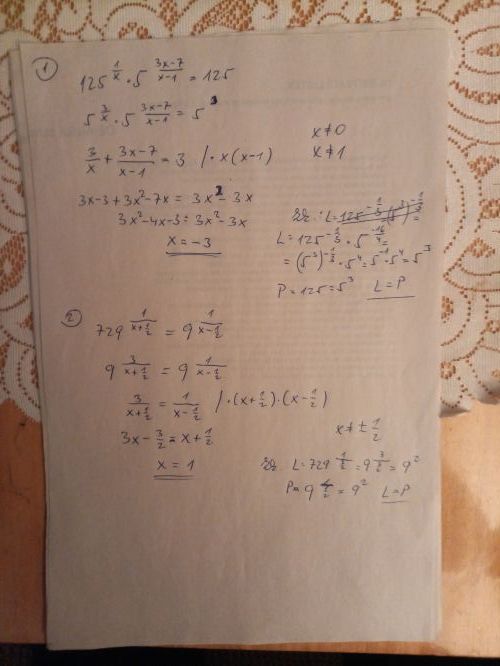 1
125^(1/x) · 5^((3x-7)/(x-1)) = 125
5^(3/x) · 5^((3x-7)/(x-1)) = 5^3
3/x + (3x-7)/(x-1) = 3 /· x(x-1)
x≠0
x≠1
3x-3+3x²-7x = 3x²-3x
3x²-4x-3 = 3x²-3x
x = -3
L = 125^(-1/3) · 5^(-16/-4) =
= (5^3)^(-1/3) · 5^4 = 5^(-1) · 5^4 = 5^3
P = 125 = 5^3 L = P
2
729^(1/(x+1/2)) = 9^(1/(x-1/2))
9^(3/(x+1/2)) = 9^(1/(x-1/2))
3/(x+1/2) = 1/(x-1/2) /·(x+1/2)·(x-1/2)
3x - 3/2 = x + 1/2
x = 1
x≠±1/2